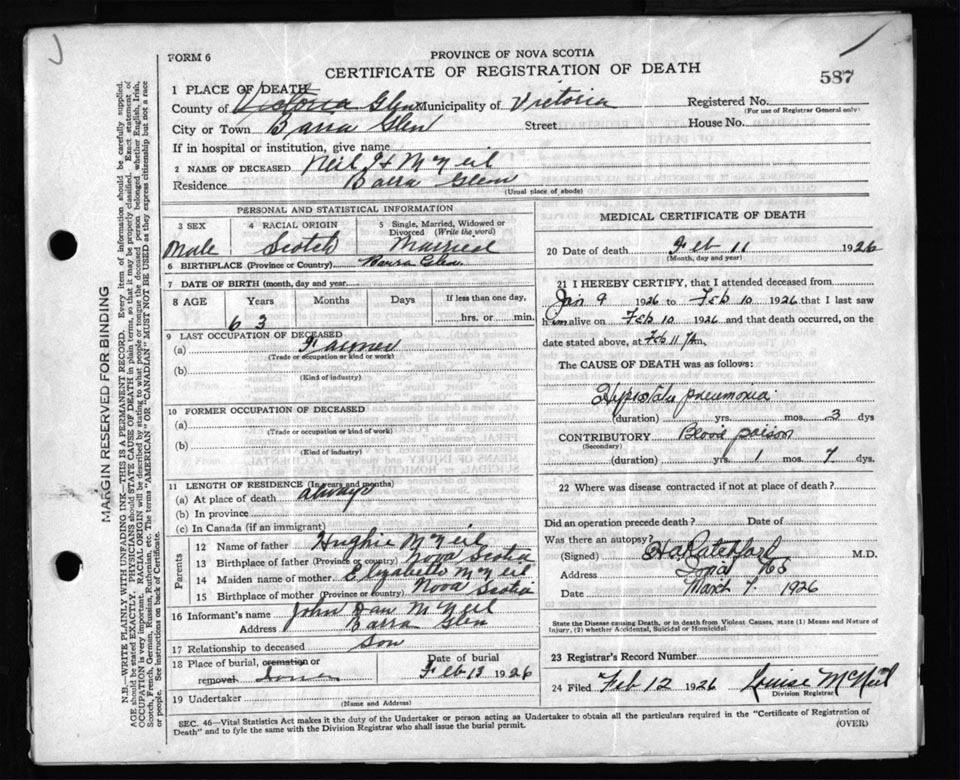 FORM 6
PROVINCE OF NOVA SCOTIA
CERTIFICATE OF REGISTRATION OF DEATH
587
1 PLACE OF DEATH
County of Victoria Glen Municipality of Victoria Registered No.
(For use of Registrar General only)
City or Town Barra Glen Street House No.
If in hospital or institution, give name
2 NAME OF DECEASED Neil H McNeil
Residence Barra Glen
(Usual place of abode)
PERSONAL AND STATISTICAL INFORMATION
3 SEX 4 RACIAL ORIGIN 5 Single, Married, Widowed or Divorced (Write the word)
Male Scotch Married
6 BIRTHPLACE (Province or Country) Barra Glen
7 DATE OF BIRTH (month, day and year)
8 AGE Years Months Days If less than one day,
63 hrs. or min.
9 LAST OCCUPATION OF DECEASED
(a) Farmer
(Trade or occupation or kind or work)
(b)
(Kind of industry)
10 FORMER OCCUPATION OF DECEASED
(a)
(Trade or occupation or kind of work)
(b)
(Kind of industry)
11 LENGTH OF RESIDENCE (In years and months)
(a) At place of death always
(b) In province
(c) In Canada (if an immigrant)
Parents
12 Name of father Hughie McNeil
13 Birthplace of father (Province or country) Nova Scotia
14 Maiden name of mother Elizabeth McNeil
15 Birthplace of mother (Province or Country) Nova Scotia
16 Informant's name John Dan McNeil
Address Barra Glen
17 Relationship to deceased Son
18 Place of burial, cremation or Date of burial
removal Iona Feb 13 1926
19 Undertaker
(Name and Address)
MEDICAL CERTIFICATE OF DEATH
20 Date of death Feb 11 1926
(Month, day and year)
21 I HEREBY CERTIFY, that I attended deceased from
Jan 9 1926 to Feb 10 1926 that I last saw
him alive on Feb 10 1926 and that death occurred, on
date stated above, at Feb 11
The CAUSE OF DEATH was as follows:
Hypostatic pneumonia
(duration) yrs. mos. 3 dys
CONTRIBUTORY Blood poison
(Secondary)
(duration) yrs. 1 mos. 7 dys.
22 Where was disease contracted if not at place of death?
Did an operation precede death? Date of
Was there an autopsy?
(Signed) M.D.
Address Iona
Date March 7. 1926
State the Disease causing Death, or in death from Violent Causes, state (1) Means and Nature of
Injury, (2) whether Accidental, Suicidal or Homicidal.
23 Registrar's Record Number
24 Filed Feb 12 1926 Louise McNeil
Division Registrar
SEC. 46—Vital Statistics Act makes it the duty of the Undertaker or person acting as Undertaker to obtain all the particulars required in the "Certificate of Registration of
Death" and to fyle the same with the Division Registrar who shall issue the burial permit.
(OVER)
MARGIN RESERVED FOR BINDING
N.B.—WRITE PLAINLY WITH UNFADING INK—THIS IS A PERMANENT RECORD. Every item of information should be carefully supplied.
AGE should be stated EXACTLY. PHYSICIANS should STATE CAUSE OF DEATH in plain terms, so that it may be properly classified. Exact statement of
OCCUPATION is very important. RACIAL ORIGIN will be described by stating to what people or tongue the deceased person belonged whether English, Irish,
Scotch, French, German, Russian, Ruthenian, etc. The terms "AMERICAN" OR "CANADIAN" MUST NOT BE USED as they express citizenship but not a race
or people. See instructions on back of Certificate.